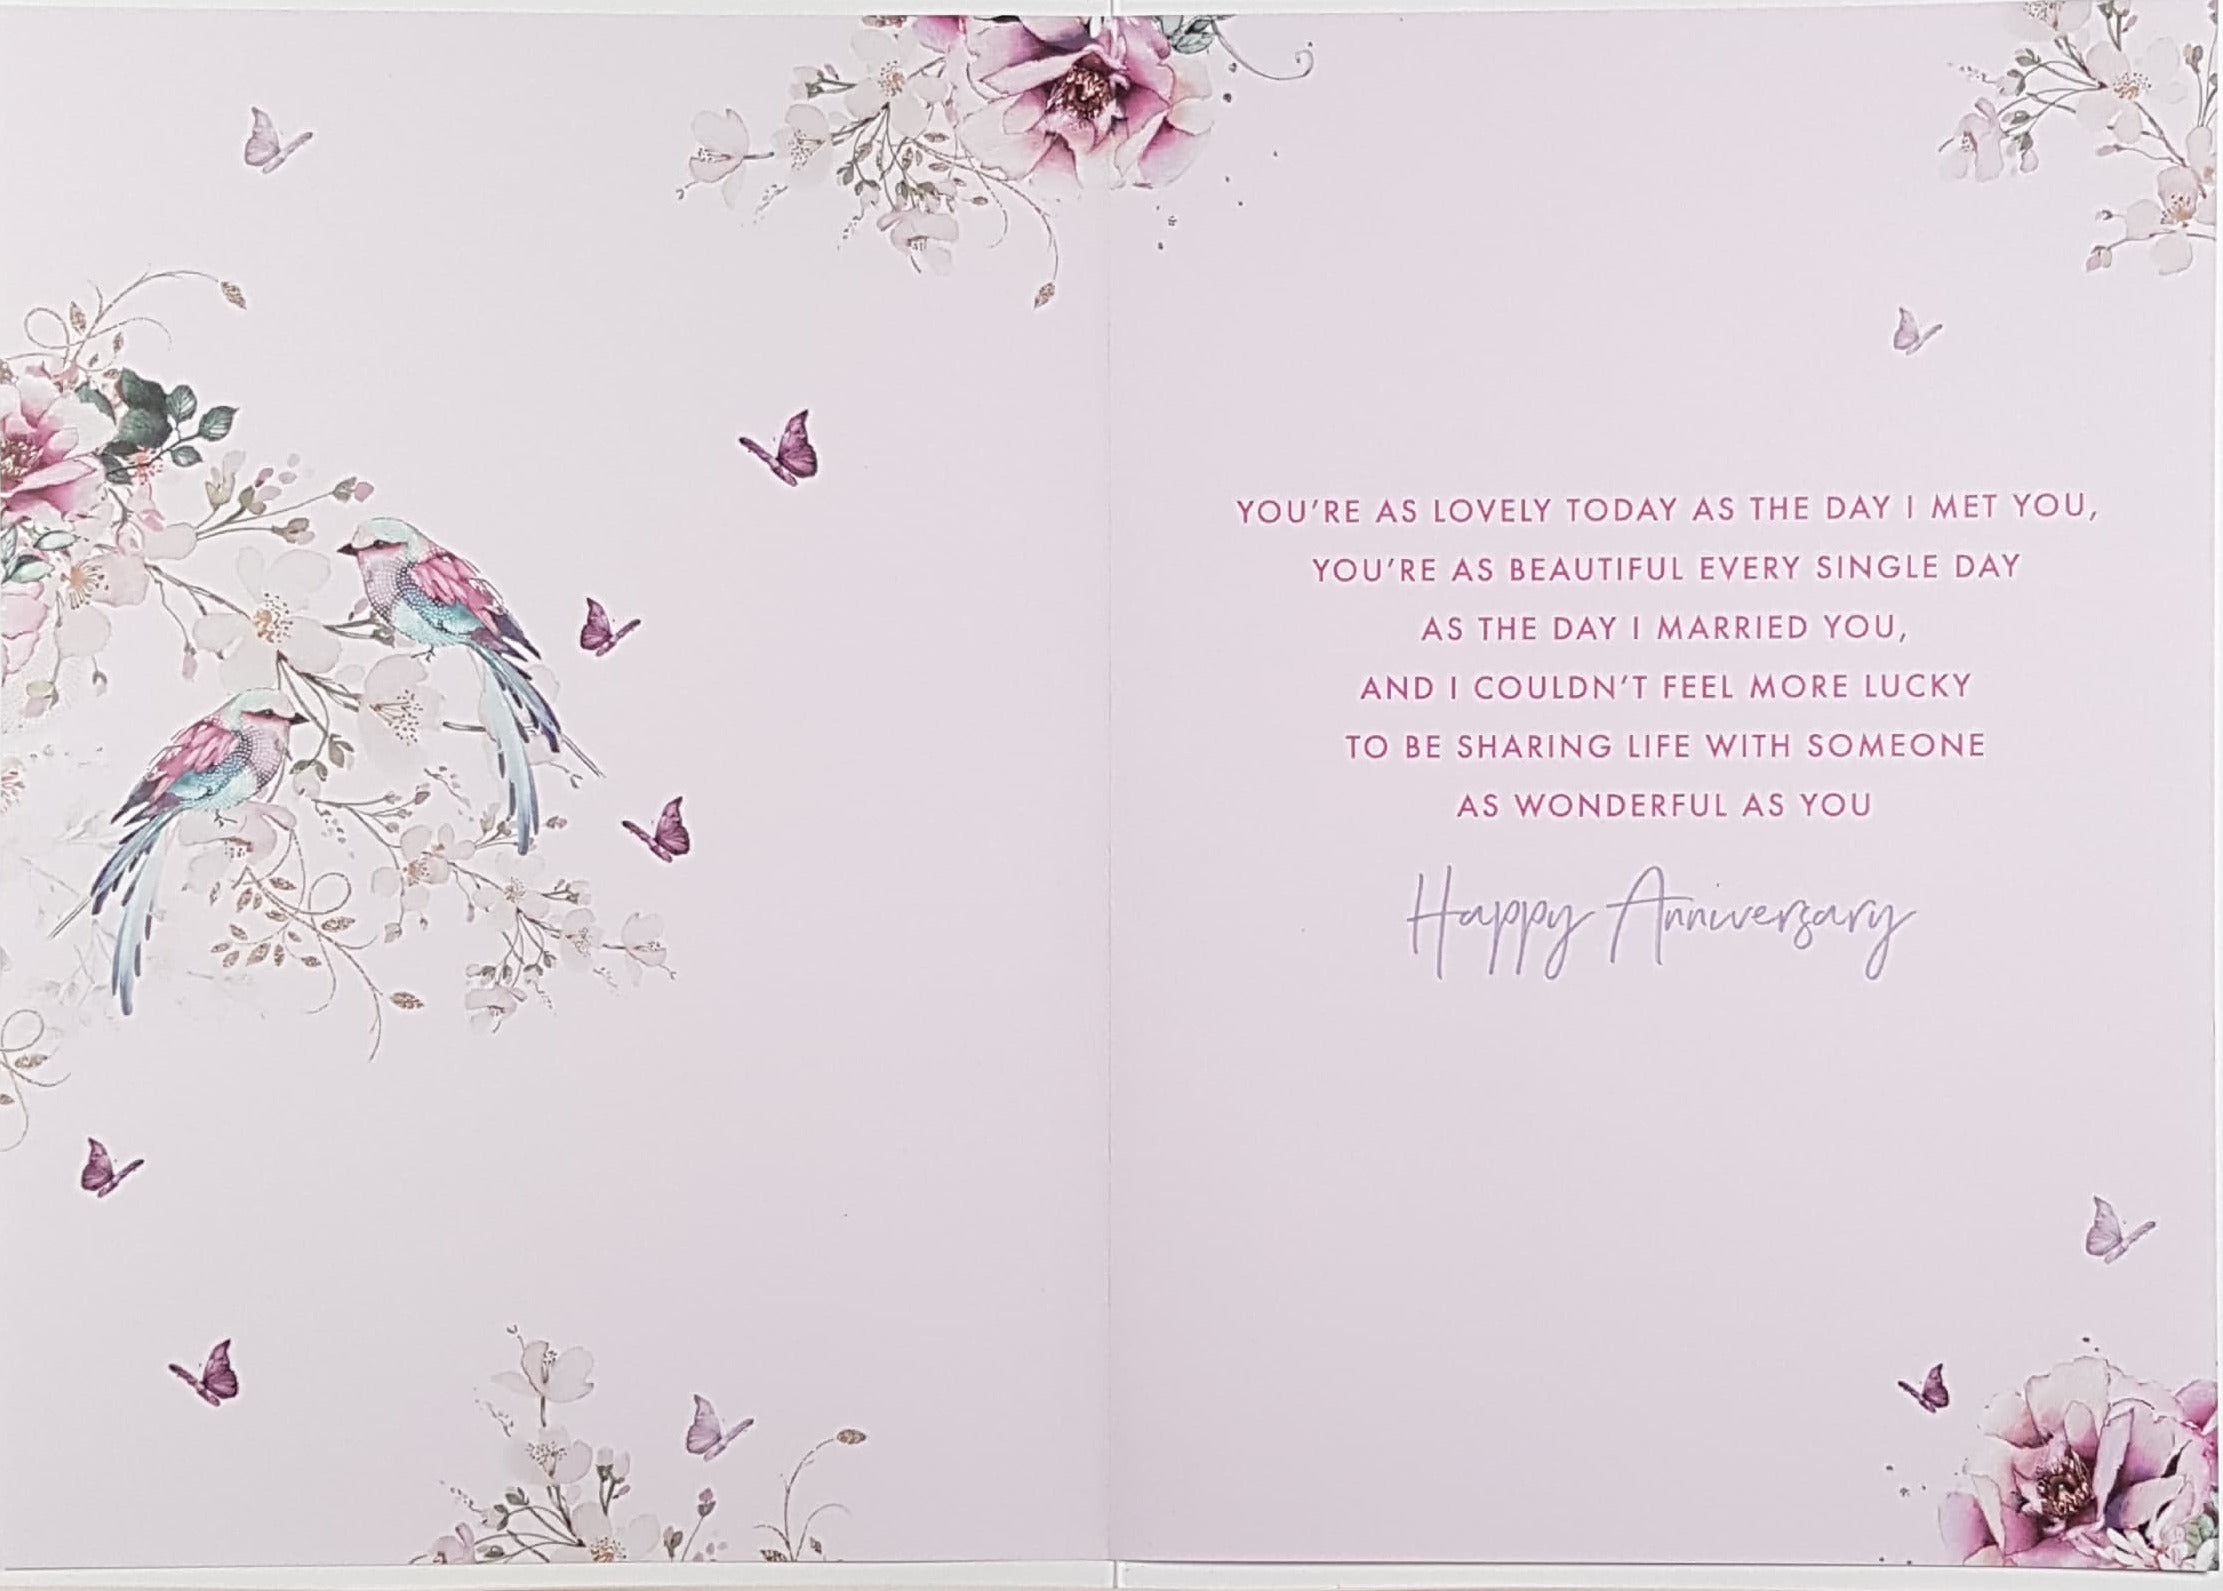 YOU'RE AS LOVELY TODAY AS THE DAY I MET YOU,
YOU'RE AS BEAUTIFUL EVERY SINGLE DAY
AS THE DAY I MARRIED YOU,
AND I COULDN'T FEEL MORE LUCKY
TO BE SHARING LIFE WITH SOMEONE
AS WONDERFUL AS YOU
Happy Anniversary